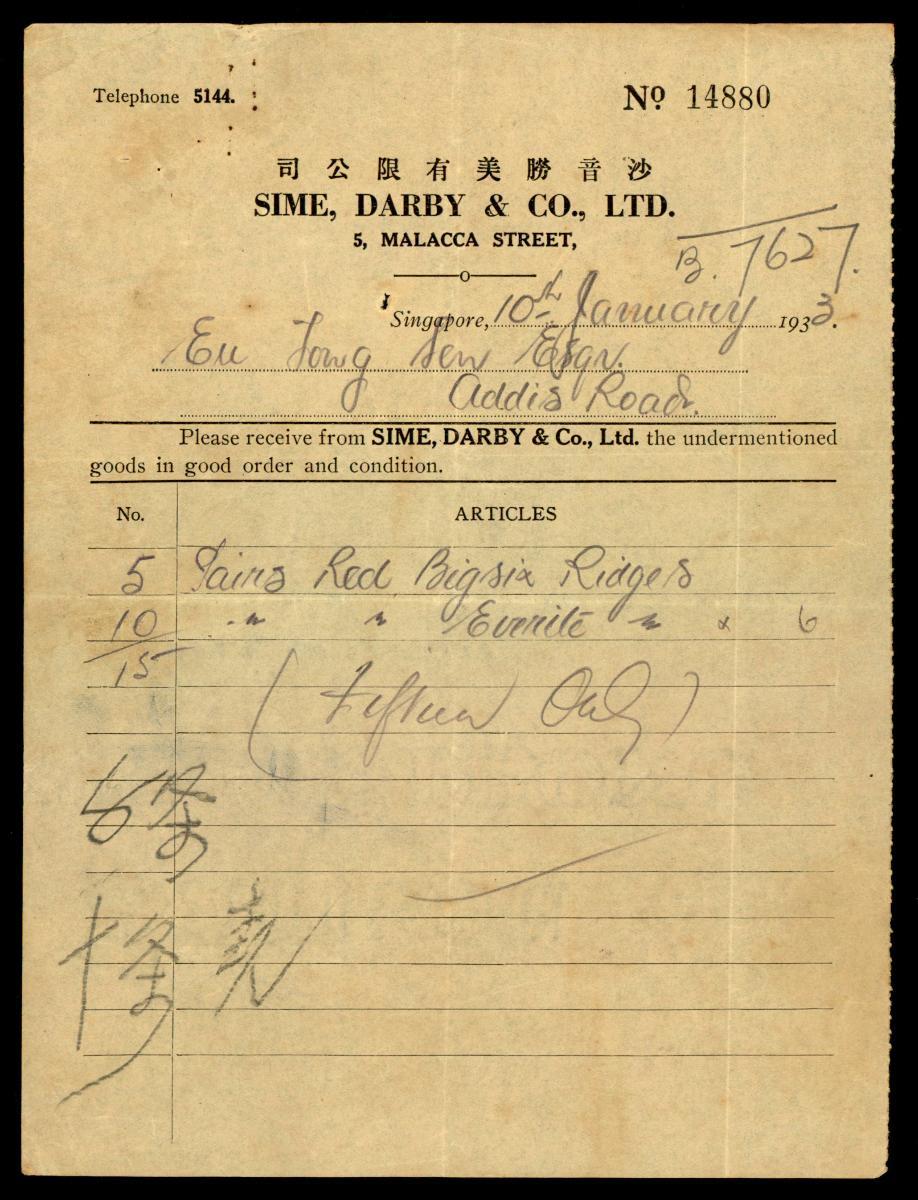 Telephone 5144.
Nº 14880
司公限有美勝音沙
SIME, DARBY & CO., LTD.
5, MALACCA STREET,
B. 7627.
Singapore, 10th January 1933.
Eu Tong Sen Esqr.
Addis Road.
Please receive from SIME, DARBY & Co., Ltd. the undermentioned
goods in good order and condition.
No. ARTICLES
5 Pairs Red Bigsix Ridges
10 " " Everite " x 6
15
(Fifteen Only)
十條